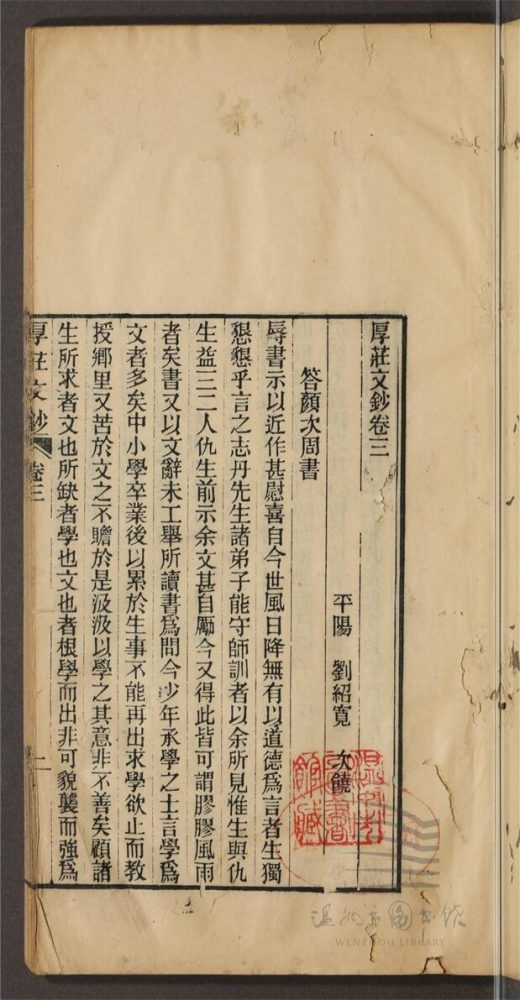 厚莊文鈔卷三
平陽　劉紹寬　次饒
答顏次周書
辱書示以近作甚慰喜自今世風日降無有以道德爲言者生獨
懇懇乎言之志丹先生諸弟子能守師訓者以余所見惟生與仇
生益三二人仇生前示余文甚自勵今又得此皆可謂膠膠風雨
者矣書又以文辭未工舉所讀書爲問今少年承學之士言學爲
文者多矣中小學卒業後以累於生事不能再出求學欲止而教
授鄉里又苦於文之不贍於是汲汲以學之其意非不善矣顧諸
生所求者文也所缺者學也文也者根學而出非可貌襲而強爲
厚莊文鈔　卷三　一
溫州市圖書館藏
溫州市圖書館
WENZHOU LIBRARY